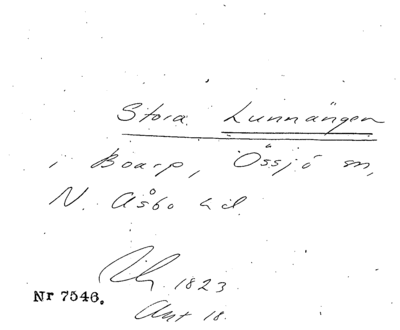 Stora Lunnängen
i Boarp, Össjö sn,
N. Åsbo hd.
1823
Nr 7546.
Ant 18.